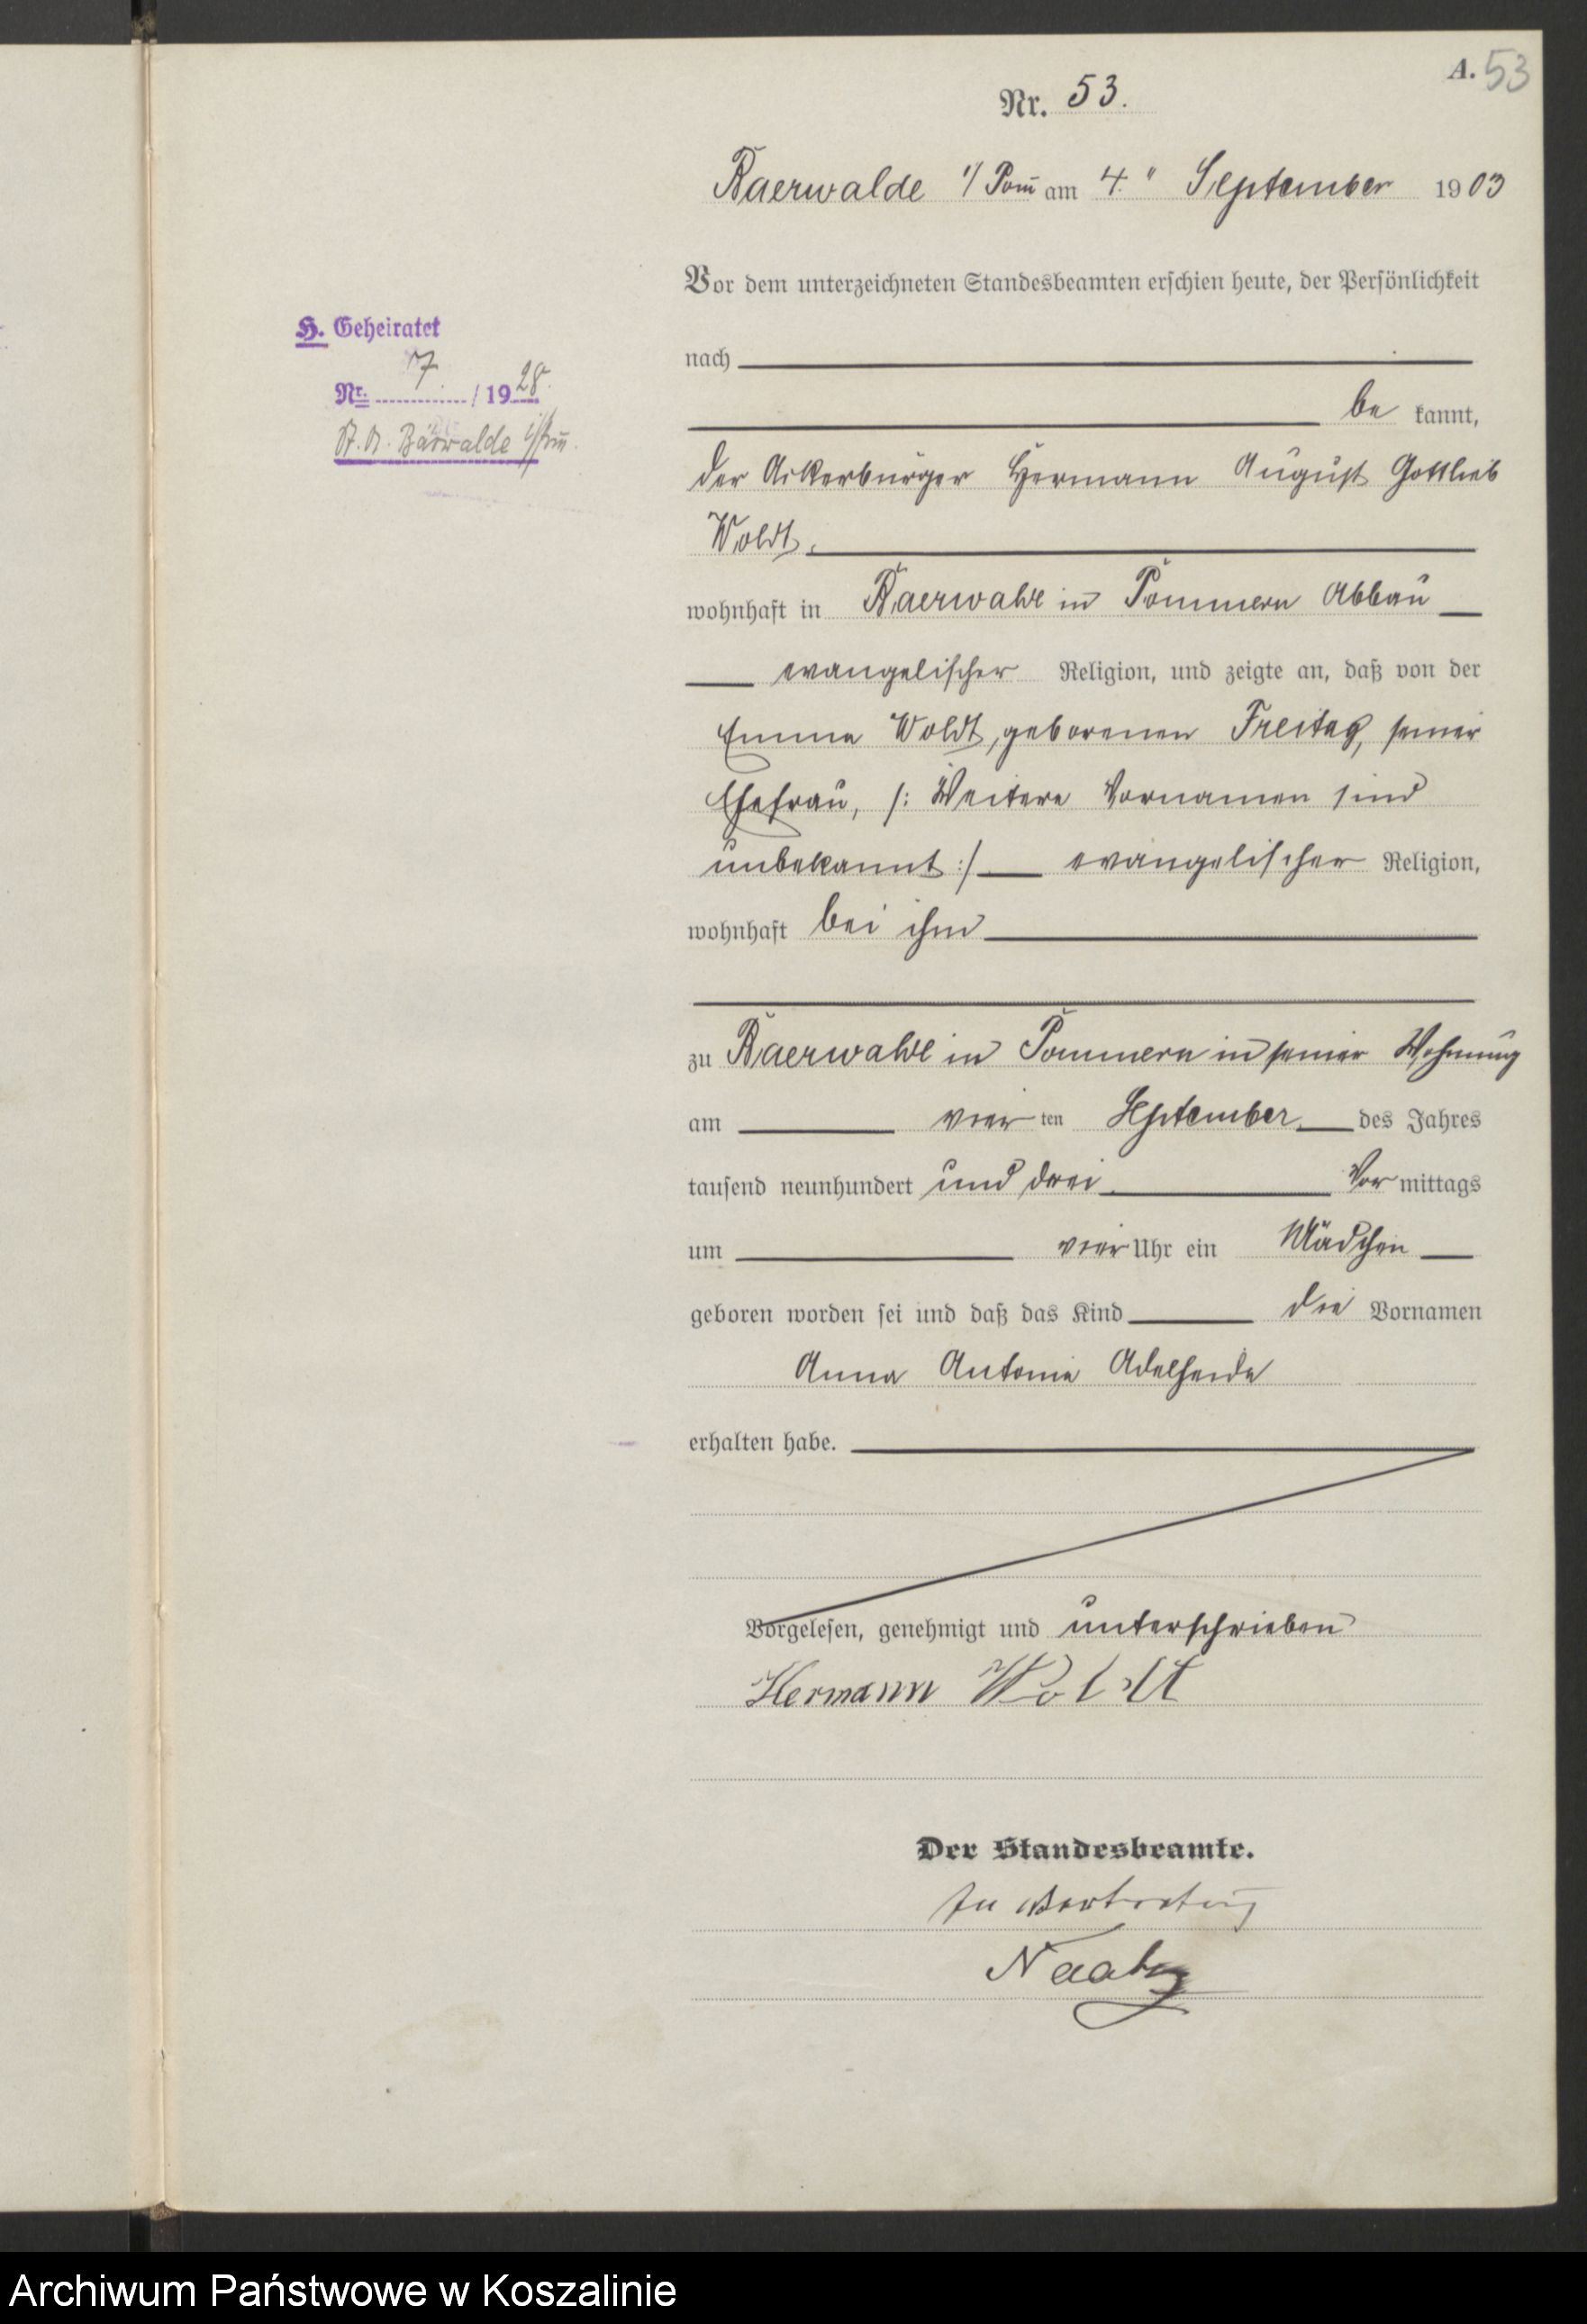 A. 53
Nr. 53.
Baerwalde i/ Pom̄ am 4. " September 1903
Vor dem unterzeichneten Standesbeamten erschien heute, der Persönlichkeit
nach
be kannt,
der Ackerbürger Hermann August Gottlieb
Woldt.
wohnhaft in Baerwalde in Pommern Abbau
evangelischer Religion, und zeigte an, daß von der
Emma Woldt, geborenen Freitag, seiner
Ehefrau, /: Weitere Vornamen sind
unbekannt :/ evangelischer Religion,
wohnhaft bei ihm
zu Baerwalde in Pommern in seiner Wohnung
am vier ten September des Jahres
tausend neunhundert und drei Vor mittags
um vier Uhr ein Mädchen
geboren worden sei und daß das Kind die Vornamen
Anna Antonie Adelheide
erhalten habe.
Vorgelesen, genehmigt und unterschrieben
Hermann Woldt
Der Standesbeamte.
In Vertretung
H. Geheiratet
Nr. 7. / 1928.
St. A. Bärwalde i/Pom.
Archiwum Państwowe w Koszalinie